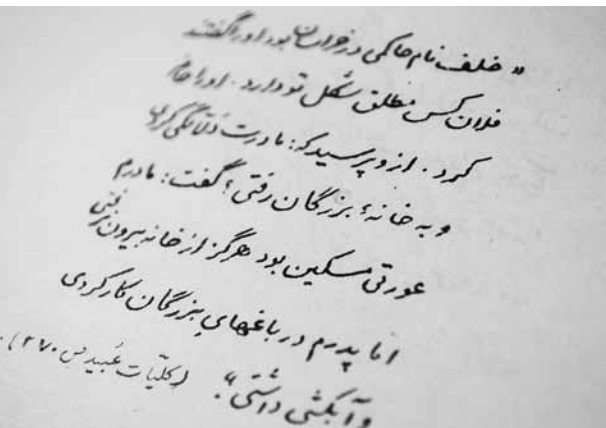 « خلف نام حاکمی در خراسان بود او را گفتند
فلان کس مطلق شکل تو دارد. او را حاضر
کرد. از وی پرسید که: مادرت دلالگی کردی
و به خانهٔ بزرگان رفتی؟ گفت: مادرم
عورتی مسکین بود هرگز از خانه بیرون نرفتی
اما پدرم در باغهای بزرگان کار کردی
و آبکشی داشتی». (کلیّات عُبید ص ۲۷۰).